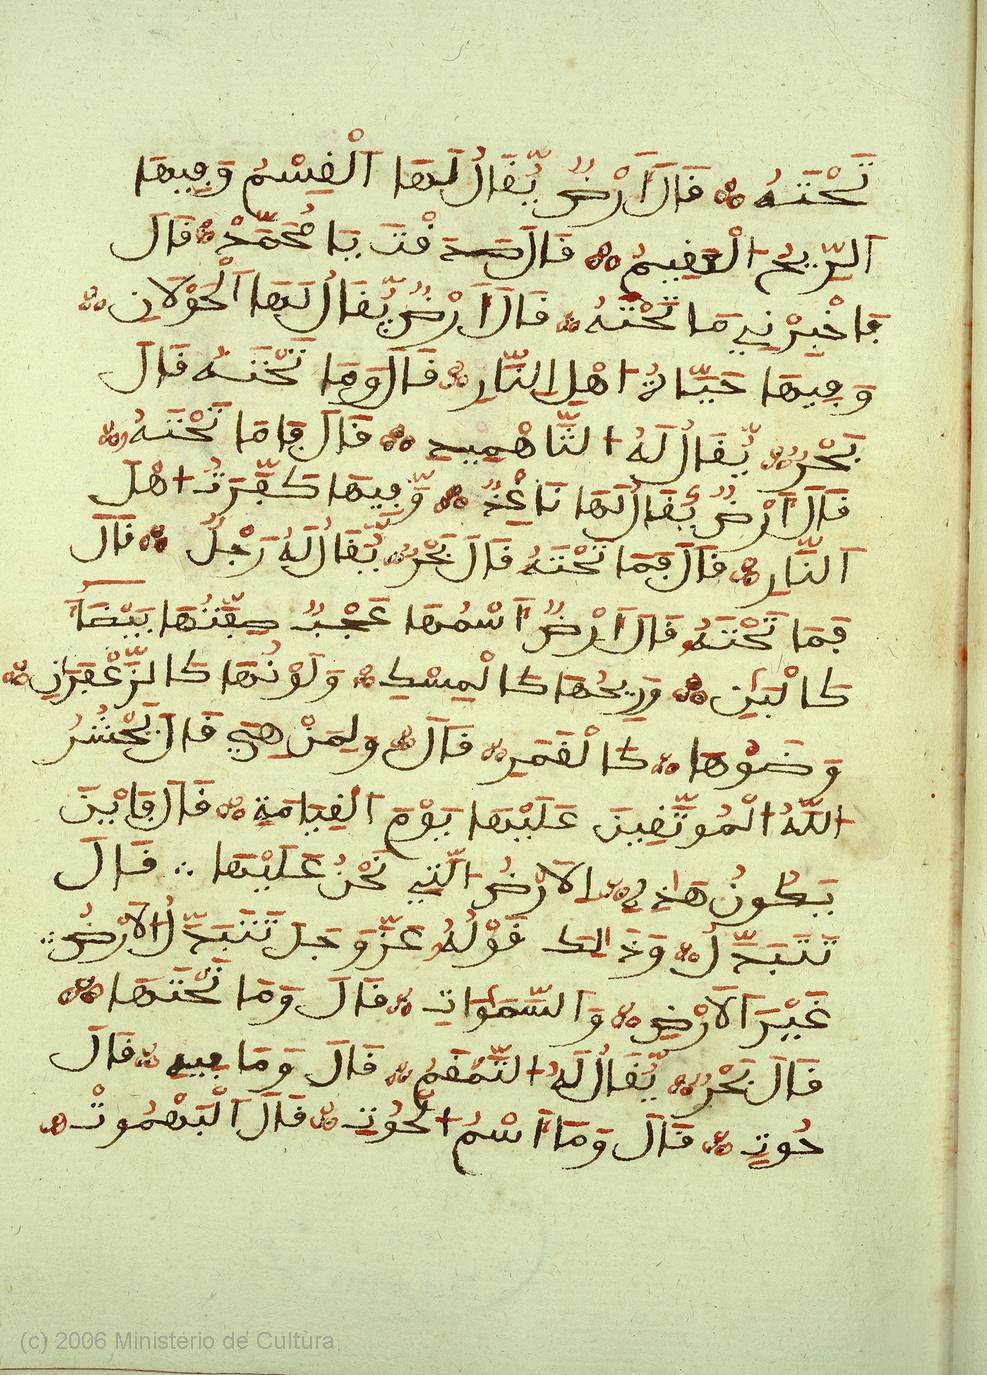 تَحْتَهُ قَالَ أَرْضٌ يُّقَالُ لَهَا الْقِسْمُ وَفِيهَا
الرِّيحُ الْعَقِيمُ قَالَ صَدَقْتَ يَا مُحَمَّدْ قَالَ
فَاخْبِرْنِي مَا تَحْتَهُ قَالَ أَرْضٌ يُّقَالُ لَهَا الْحَوْلَانِ
وَفِيهَا حَيَّاةُ اهْلِ النَّارِ قَالَ وَمَا تَحْتَهُ قَالَ
بَحْرٌ يُّقَالُ لَهُ الثَّاهْمِيحِ قَالَ فَامَا تَحْتَهُ
قَالَ أَرْضٌ يُقَالُ لَهَا نَاعِمٌ وَّفِيهَا كَفَّرَتُ اهْلَ
النَّارِ قَالَ فَمَا تَحْتَهُ قَالَ بَحْرٌ يُّقَالُ لَهُ رَجْلٌ قَالَ
فَمَا تَحْتَهُ قَالَ أَرْضٌ اسْمُهَا عَجْبٌ صِفَّتُهَا بَيْضَآ
كَالْبَنِ وَرِيحُهَا كَالْمِسْكِ وَلَوْنُهَا كَالزَّعْفَرَانِ
وَضَوْءُهَا كَالْقَمَرِ قَالَ وَلِمَنْ هِيَ قَالَ يَحْشُرُ
اللَّهُ الْمُوتَّقِينَ عَلَيْهَا يَوْمَ الْقِيَامَةِ قَالَ فَايْنَ
يَكُونُ هَذِهِ الاَرْضُ الَّتِي نَحْنُ عَلَيْهَا قَالَ
تَتَبَدَّلُ وَذَلِكَ قَوْلُهُ عَزَّوَجَلَ تَتَبَدَّلُ الاَرْضُ
غَيْرَ الاَرْضِ وَالسَّمَوَاتِ قَالَ وَمَا تَحْتَهَا
قَالَ بَحْرٌ يُّقَالُ لَهُ الْتَّمْقَمُ قَالَ وَمَا فِيهِ قَالَ
حُوتِ قَالَ وَمَا اسْمُ الْحُوتِ قَالَ الْبَهْمُوتْ
(c) 2006 Ministério de Cultura